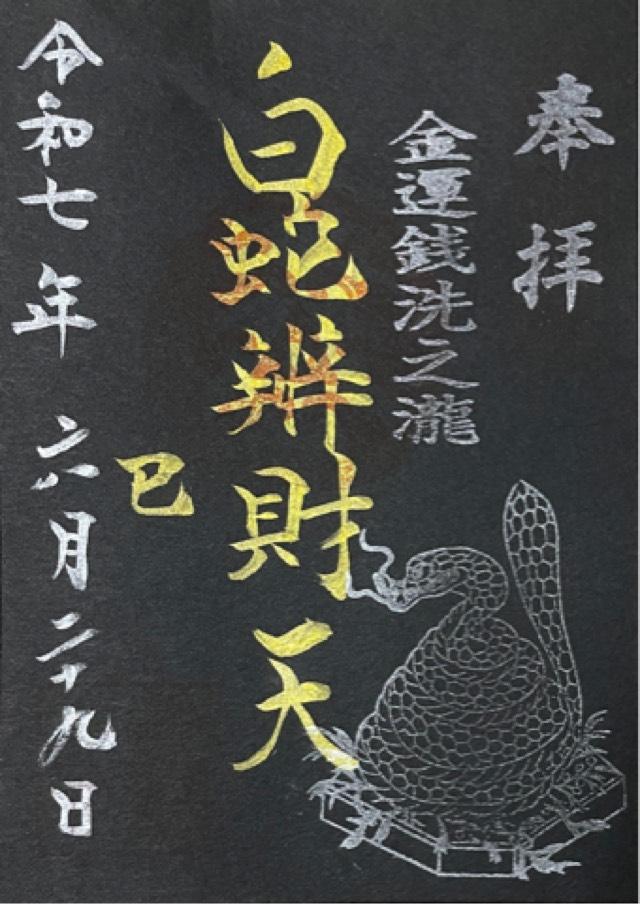 奉拝
金運銭洗之瀧
白蛇辨財天
巳
令和七年 六月二十九日